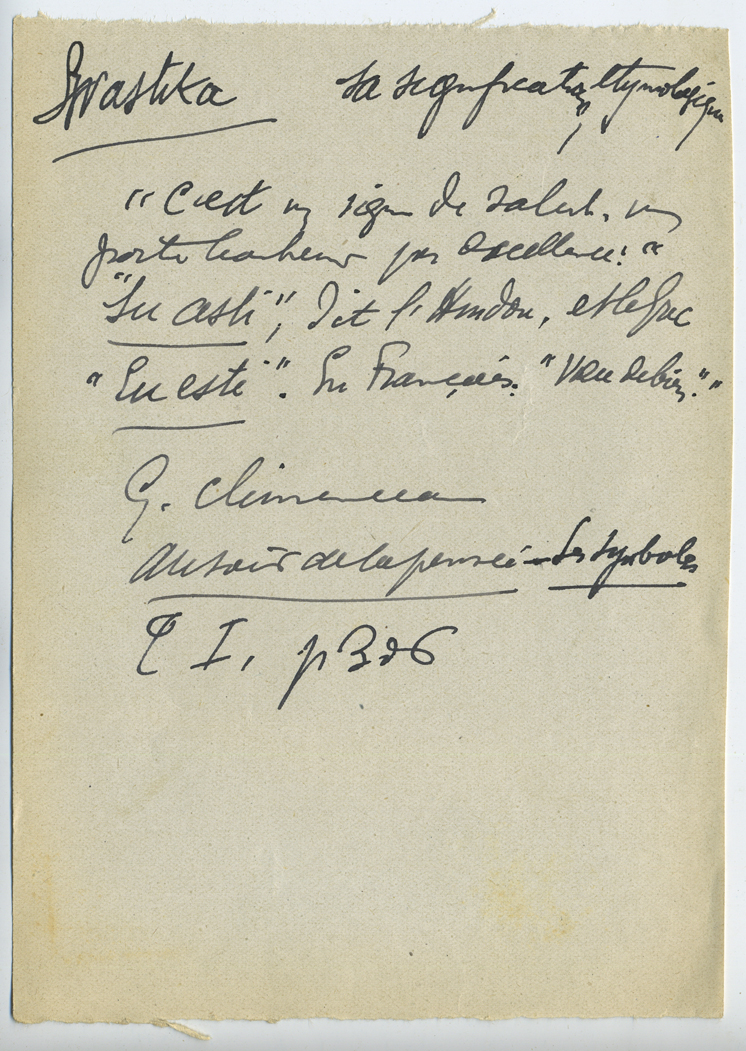 Swastika Sa signification étymologique
"C'est un signe de salut, un
porte bonheur par excellence."
"Su asti", dit l'Hindou, et le Grec
"Eu esti". En Français. "Vœu de bien."
G. Clemenceau
Au soir de la pensée - Les symboles
T I, p